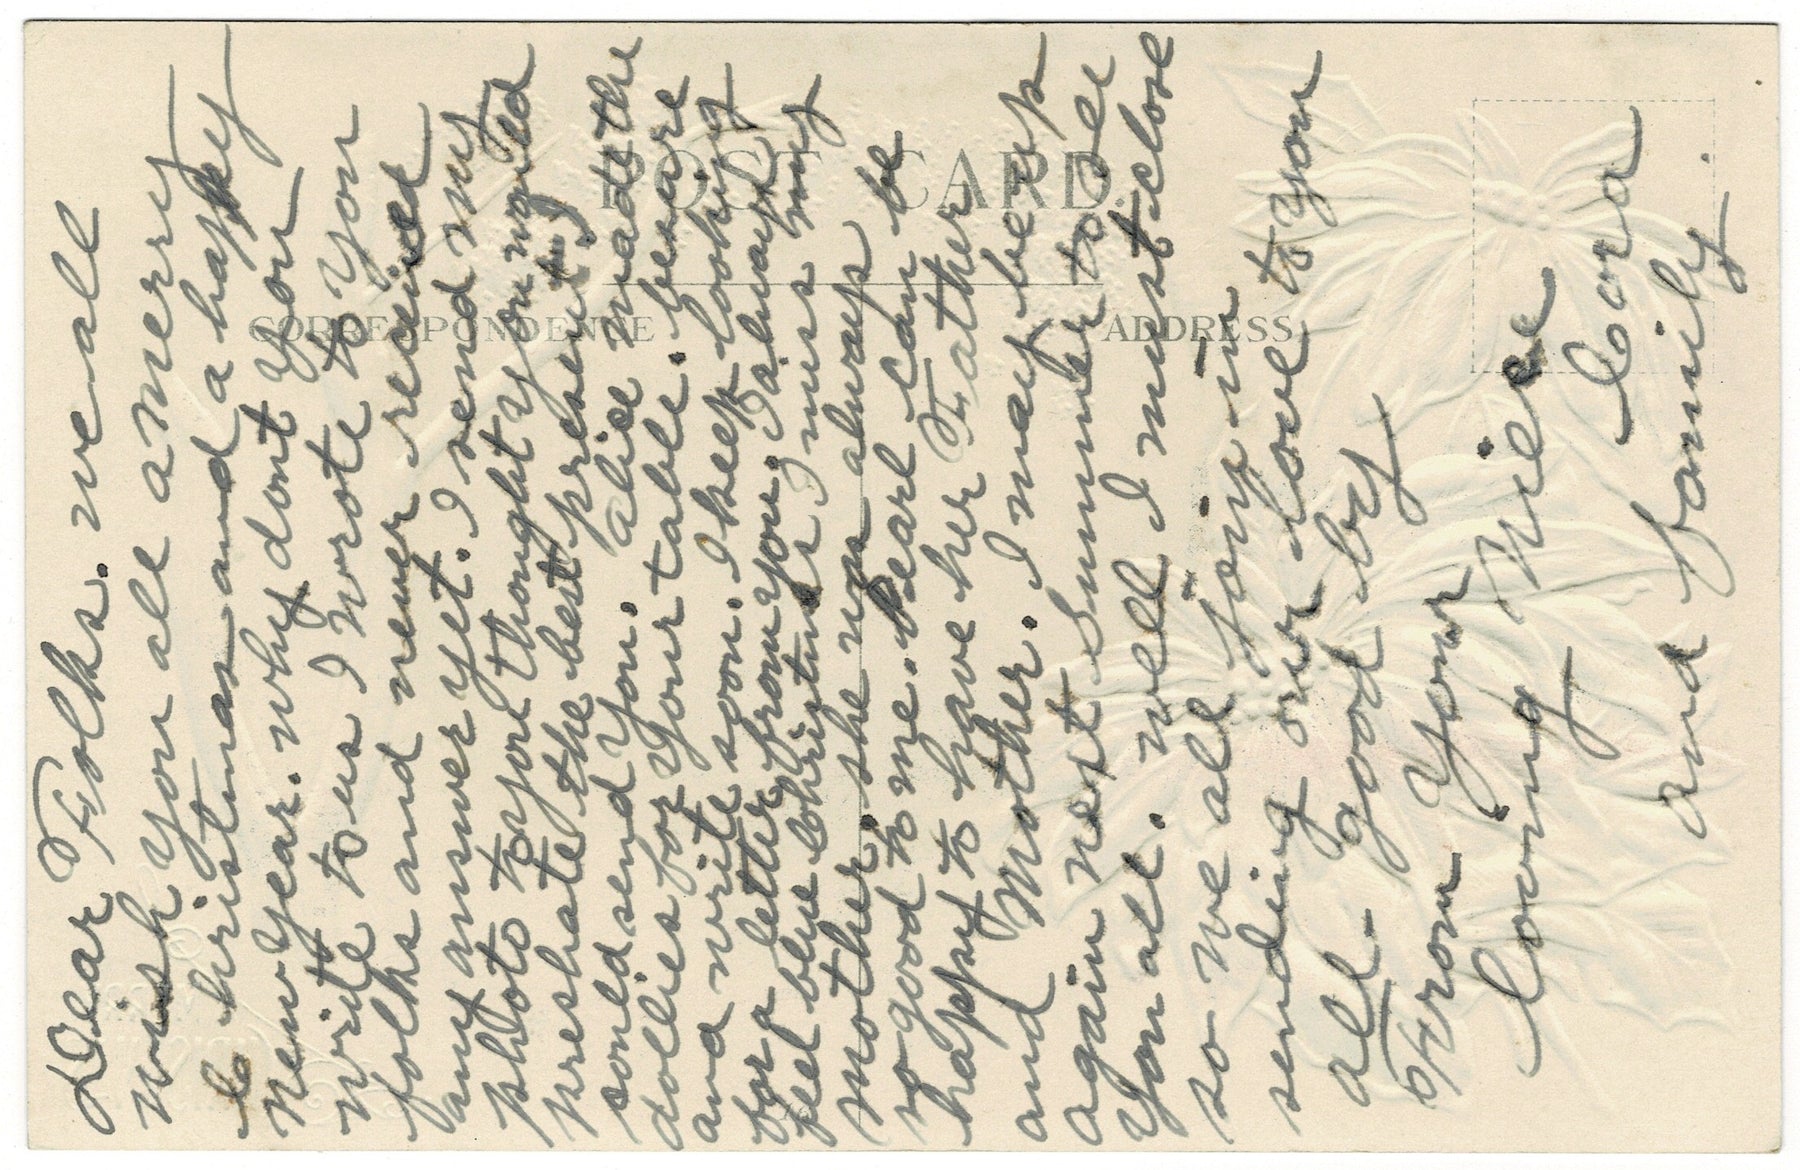 Dear Folks. we all
wish you all a merry
Christmas and a happy
New Year. why dont you
write to us I wrote to you
folks and never received
any answer yet. I send my
photo to you thought you would
preshate the best present I
could send you. alice made the
dollies for your table. besure
and write soon. I keep looking
for a letter from you. I always
feel blue Christmas I miss my
Mother. she was always
so good to me. Pearl can be
happy to have her Father
and Mother. I may be up
again next Summer to see
you all. well I must close
so we all join in
sending our love to you
all. good by
From Your
loving Niece
Cora
and family.
POST CARD.
CORRESPONDENCE
ADDRESS